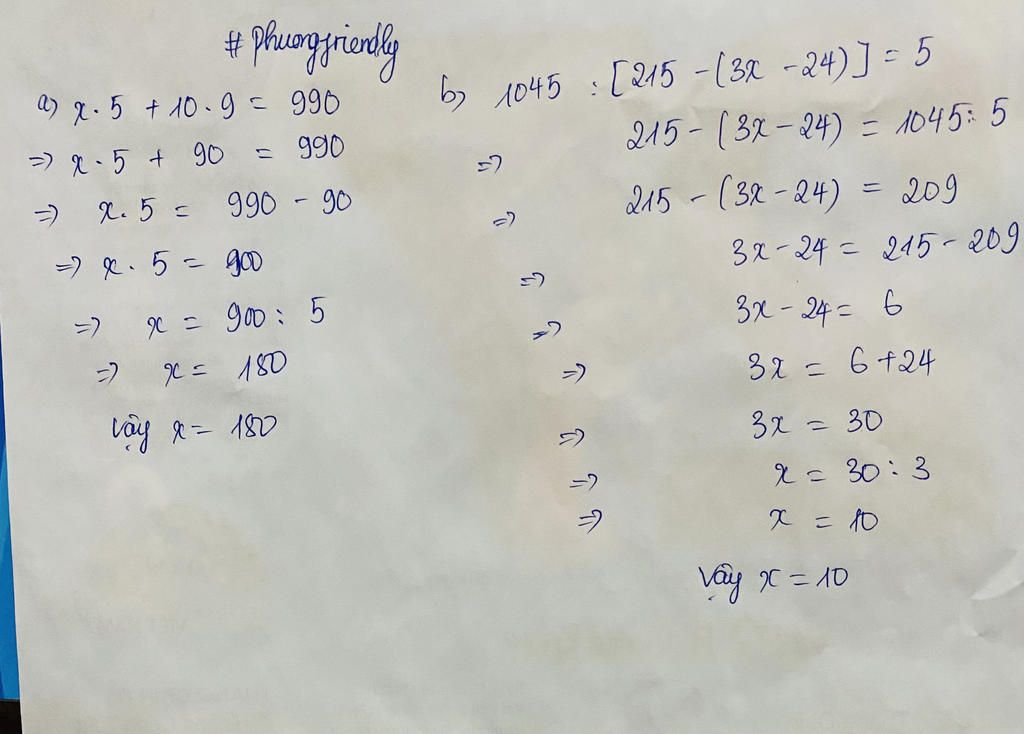 # Phuongfriendly
a) x . 5 + 10 . 9 = 990
=> x . 5 + 90 = 990
=> x . 5 = 990 - 90
=> x . 5 = 900
=> x = 900 : 5
=> x = 180
Vậy x = 180
b) 1045 : [215 - (3x - 24)] = 5
=> 215 - (3x - 24) = 1045 : 5
=> 215 - (3x - 24) = 209
=> 3x - 24 = 215 - 209
=> 3x - 24 = 6
=> 3x = 6 + 24
=> 3x = 30
=> x = 30 : 3
=> x = 10
Vậy x = 10